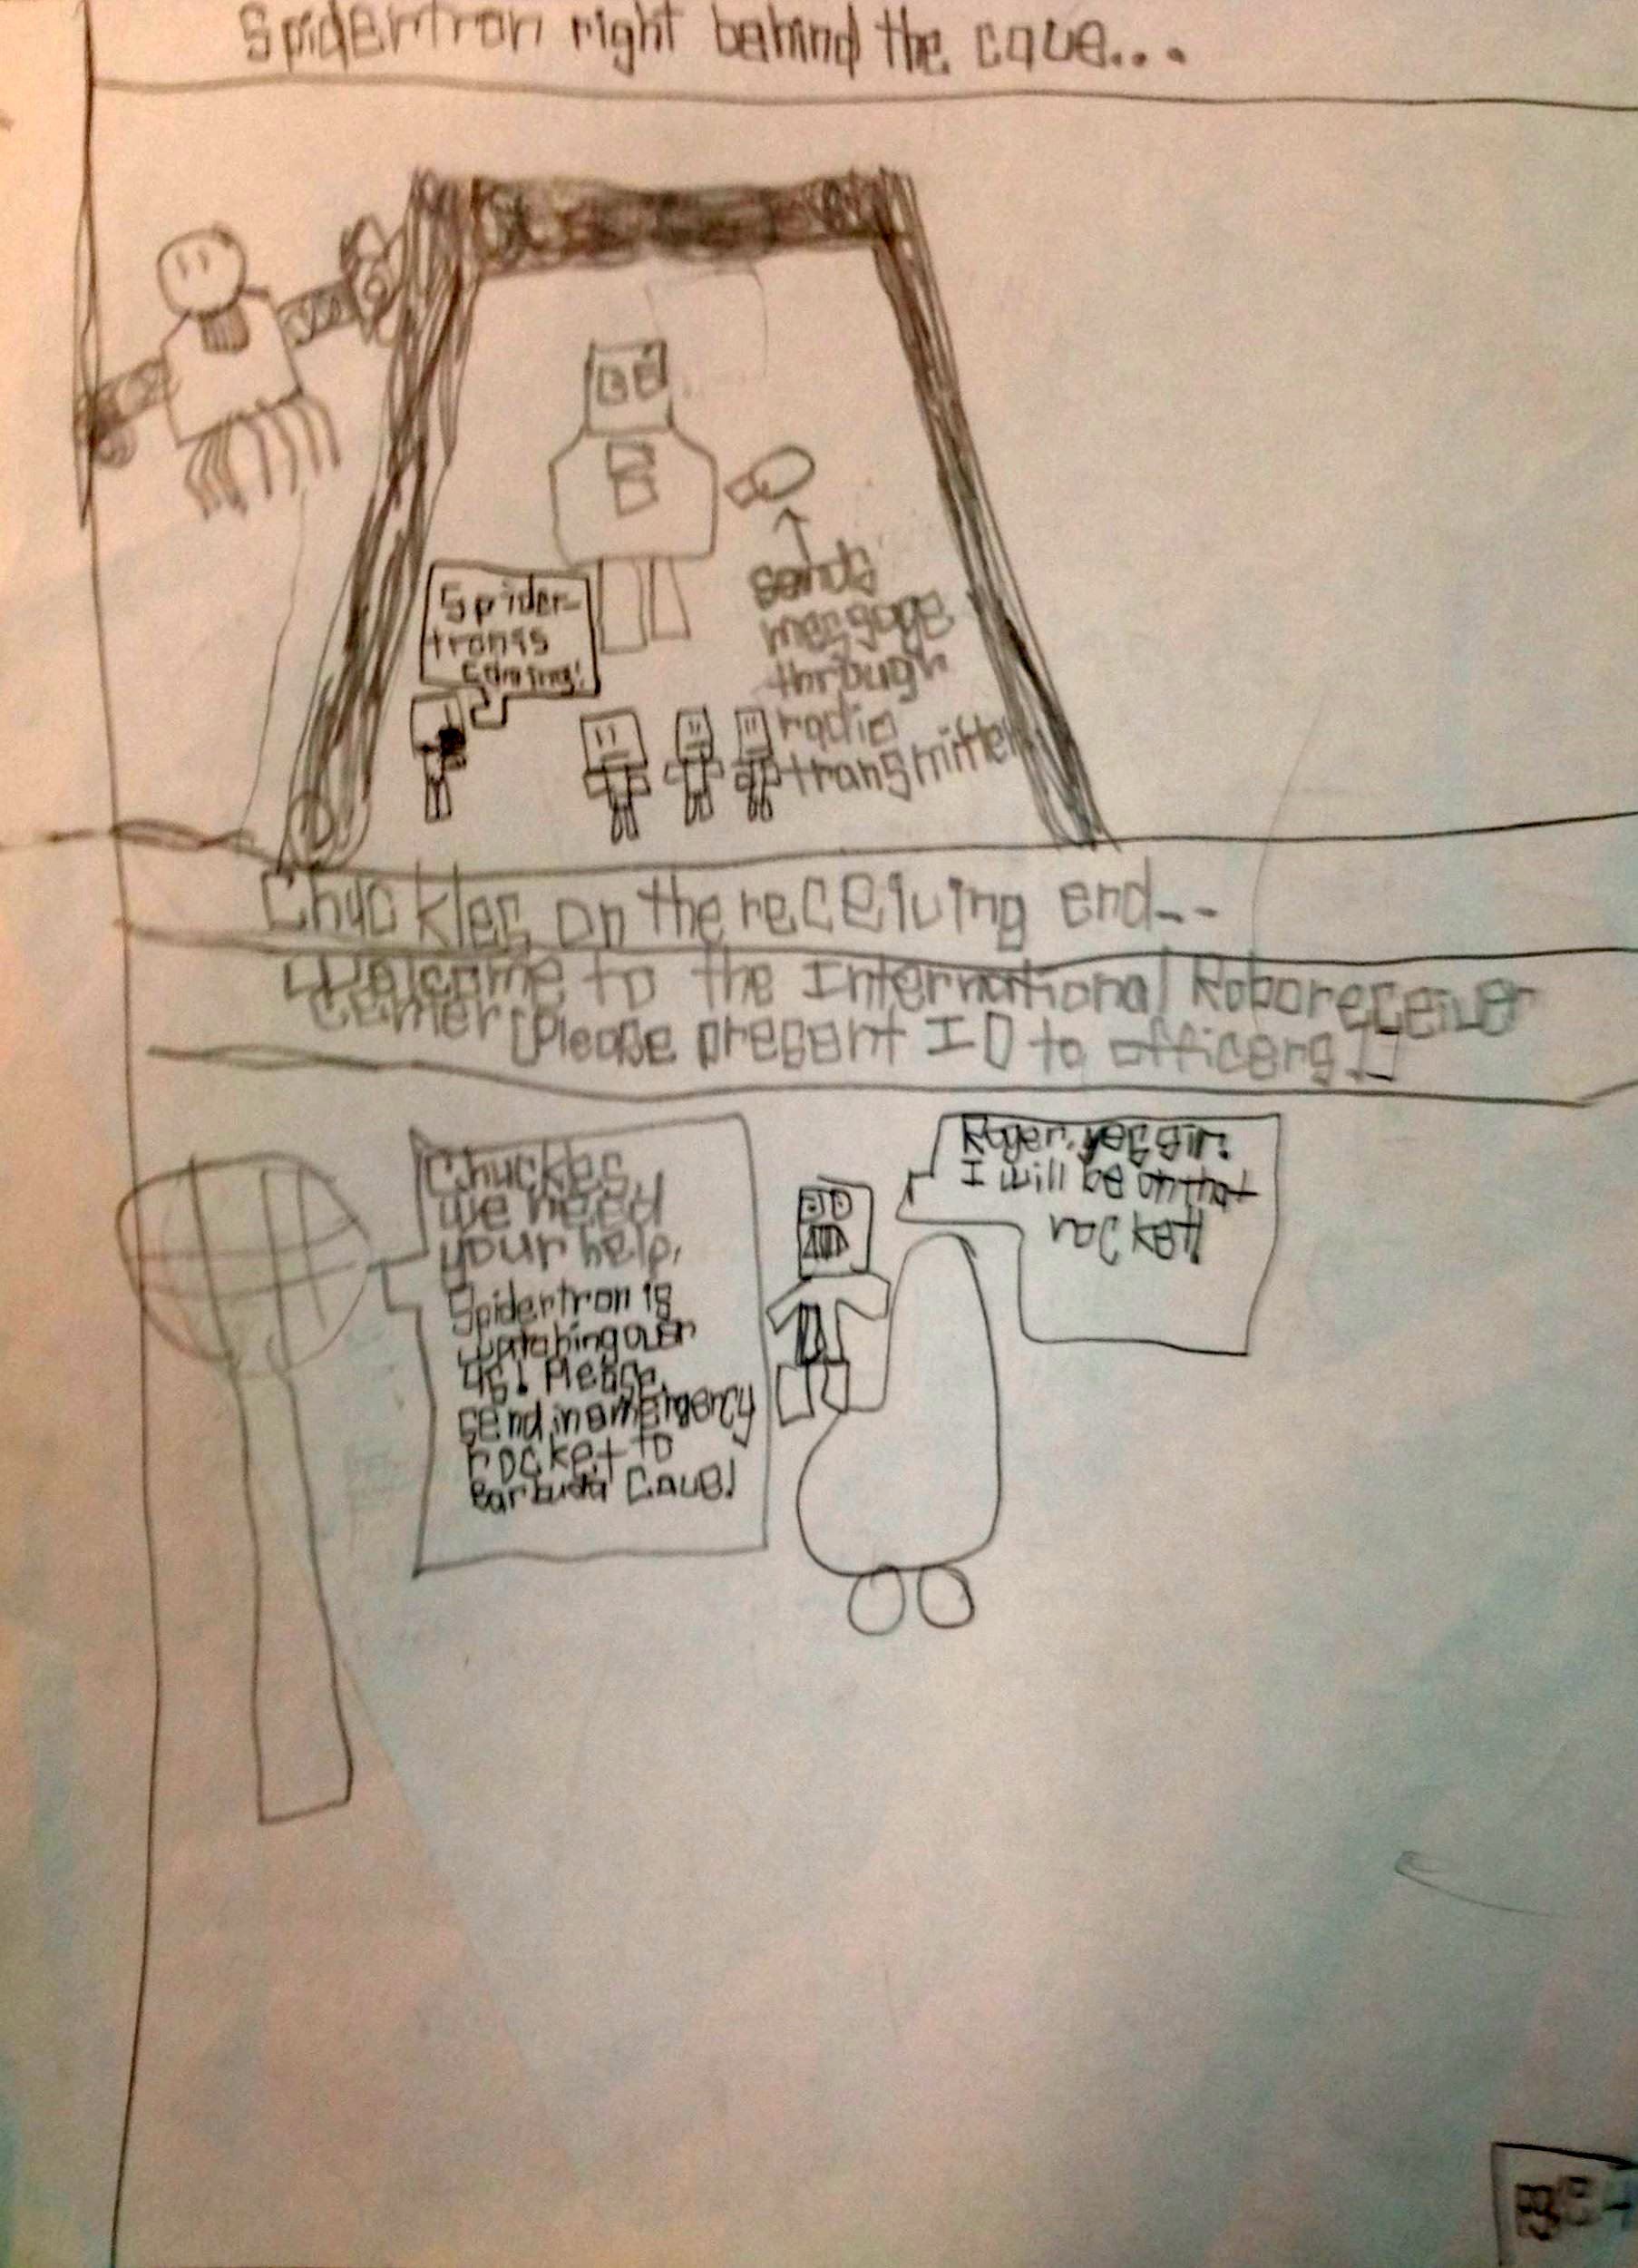 Spidertron right behind the cave...
Spider-
tron is
coming!
sends
message
through
radio
transmitter
Chuckles on the receiving end--
Welcome to the International Roboreceiver
Center [Please present ID to officers!]
Chuckles,
we need
your help.
Spidertron is
watching over
us! Please
send in emergency
rocket to
Barbuda Cave!
Roger, yes sir!
I will be on that
rocket!